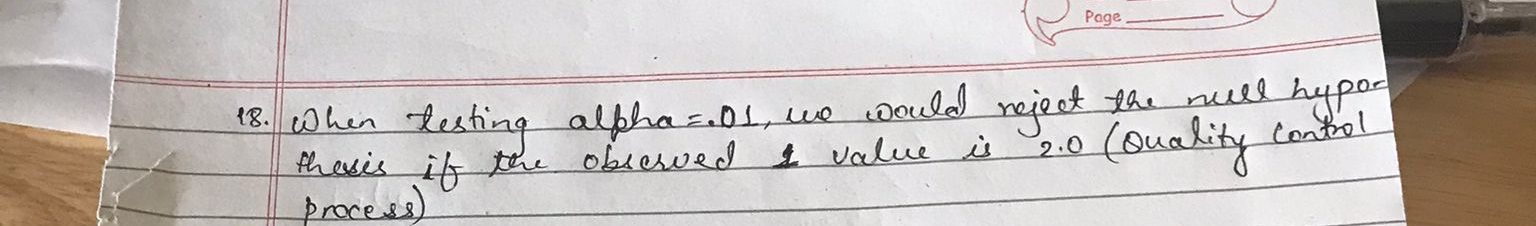 Page
18. When testing alpha=.01, we would reject the null hypo-
thesis if the observed value is 2.0 (Quality control
process)